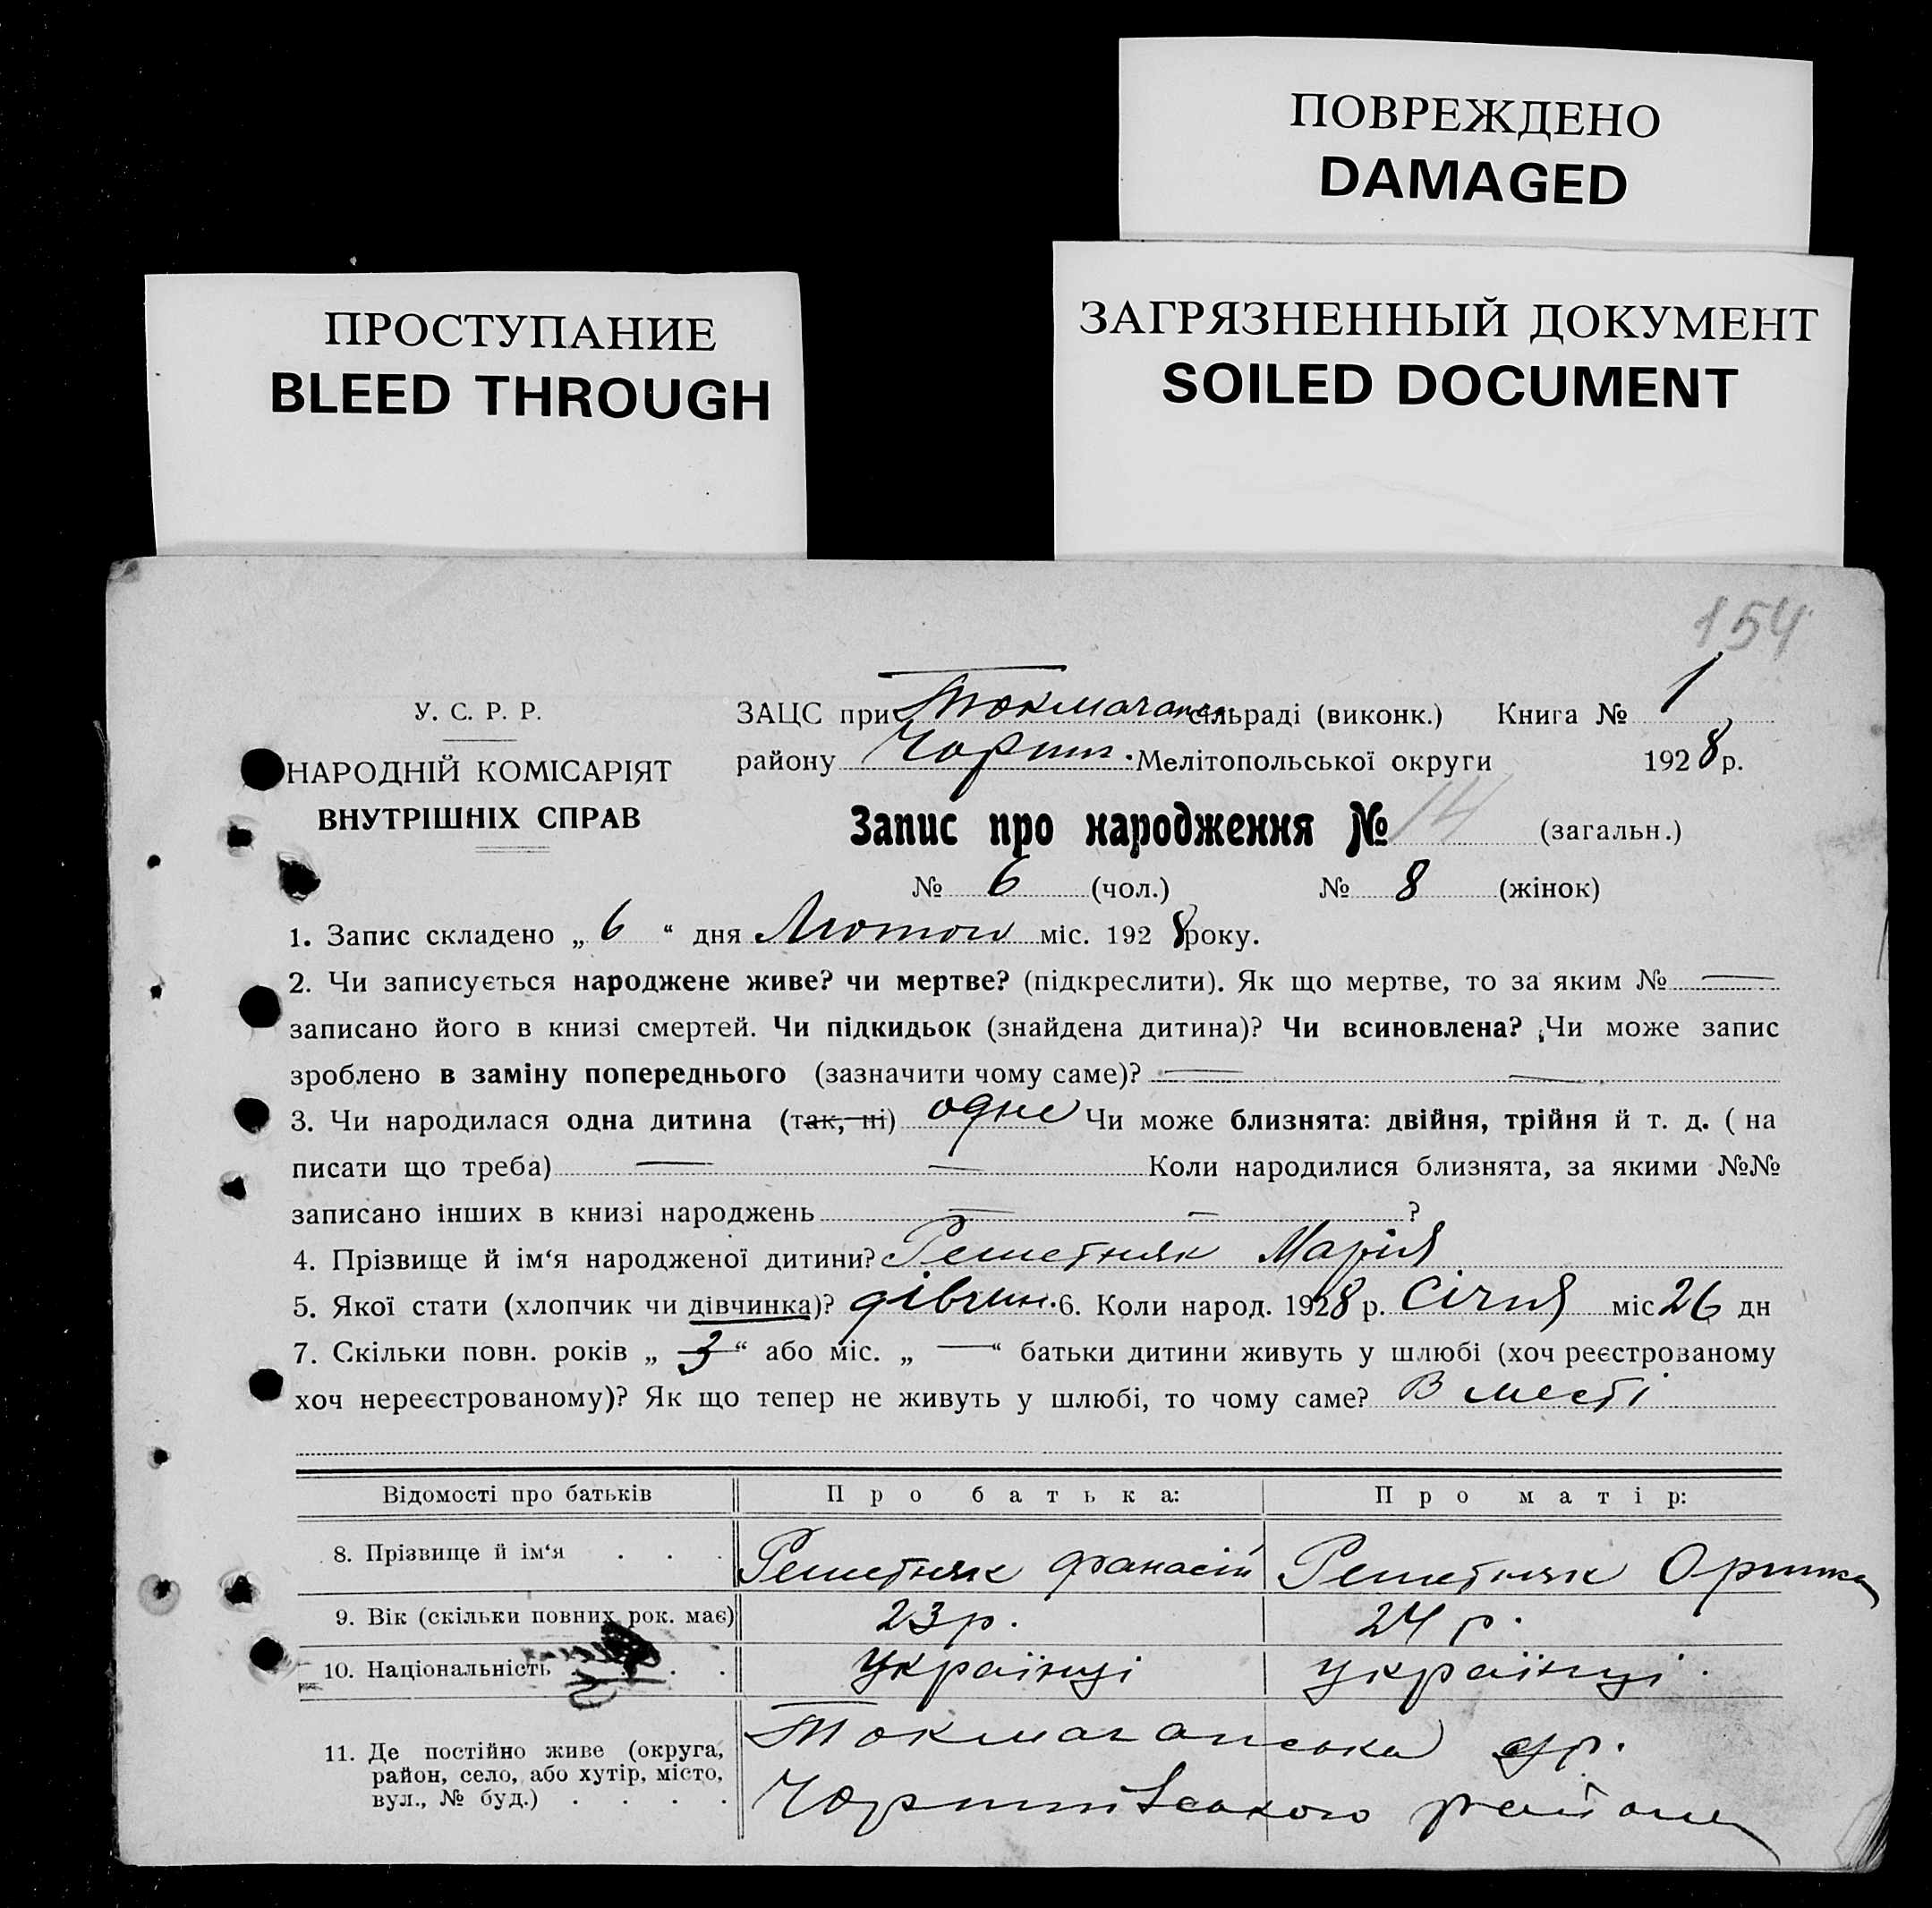 ПОВРЕЖДЕНО
DAMAGED
ПРОСТУПАНИЕ
BLEED THROUGH
ЗАГРЯЗНЕННЫЙ ДОКУМЕНТ
SOILED DOCUMENT
154
У. С. Р. Р.
НАРОДНІЙ КОМІСАРІЯТ
ВНУТРІШНІХ СПРАВ
ЗАЦС при Токмачанск сільраді (виконк.) Книга № 1
району Чорниг. Мелітопольської округи 1928 р.
Запис про народження № 14 (загальн.)
№ 6 (чол.) № 8 (жінок)
1. Запис складено „ 6 “ дня Лютого міс. 1928 року.
2. Чи записується народжене живе? чи мертве? (підкреслити). Як що мертве, то за яким № —
записано його в книзі смертей. Чи підкидьок (знайдена дитина)? Чи всиновлена? Чи може запис
зроблено в заміну попереднього (зазначити чому саме)? — —
3. Чи народилася одна дитина (так, ні) одне Чи може близнята: двійня, трійня й т. д. ( на
писати що треба) — — Коли народилися близнята, за якими №№
записано інших в книзі народжень — — ?
4. Прізвище й ім‘я народженої дитини? Решетняк Марія
5. Якої стати (хлопчик чи дівчинка)? дівчин. 6. Коли народ. 1928 р. Січня міс 26 дн
7. Скільки повн. років „ 3 “ або міс. „ — “ батьки дитини живуть у шлюбі (хоч реєстрованому
хоч нереєстрованому)? Як що тепер не живуть у шлюбі, то чому саме? В месті
Відомості про батьків Про батька: Про матір:
8. Прізвище й ім‘я . . . Решетняк Фанасій Решетняк Оришка
9. Вік (скільки повних рок. має) 23 р. 24 р.
10. Національність . . . . Українці Українці
11. Де постійно живе (округа,
район, село, або хутір, місто,
вул., № буд.) . . . .
Токмачанська с/р.
району